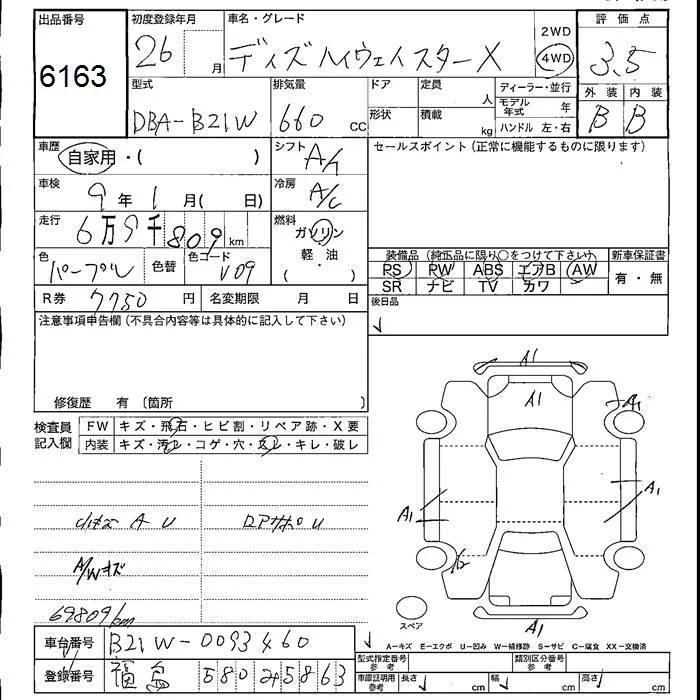 出品番号
6163
初度登録年月
26 月
車名・グレード
ディズハイウェイスターX
2WD
4WD
評価点
3.5
型式
DBA-B21W
排気量
660 cc
ドア
定員
人
形状
積載
kg
ディーラー・並行
モデル年式 年
ハンドル 左・右
外装 内装
B B
車歴
自家用・( )
シフト
A/
車検
9年1月(日)
冷房
A/C
走行
6万9千809km
燃料
ガソリン
軽・油
( ・ )
色
パープル
色替
色コード
V09
R券 7750 円
名変期限 月 日
セールスポイント(正常に機能するものに限ります)
装備品(純正品に限り○をつけて下さい)
PS PW ABS エアB AW
SR ナビ TV カワ
新車保証書
有・無
後日品
注意事項申告欄(不具合内容等は具体的に記入して下さい)
修復歴 有〔箇所 〕
検査員記入欄
FW キズ・飛石・ヒビ割・リペア跡・X要
内装 キズ・汚レ・コゲ・穴・スレ・キレ・破レ
小キズ A U
ロアサポ U
A/Wキズ
69809km
A1
A1
A1
A1
A1
A1
スペア
A-キズ E-エクボ U-凹み W-補修跡 S-サビ C-腐食 XX-交換済
車台番号 B21W-0093460
登録番号 福島 580 み 5863
型式指定番号参考
類別区分番号参考
車庫証明用参考
長さ cm 幅 cm 高さ cm